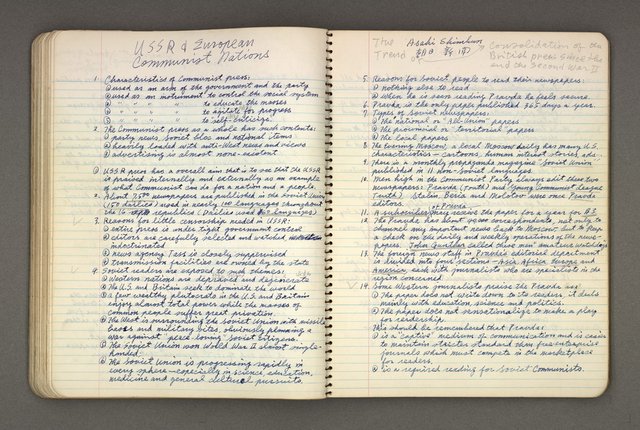 USSR & European
Communist Nations
1. Characteristics of Communist press:
① used as an arm of the government and the party
② used as an instrument to control the social system
③ " " " " to educate the masses
④ " " " " to agitate for progress
⑤ " " " " to self-criticize
2. The Communist press as a whole has such contents:
① party news, Soviet bloc and national items
② heavily loaded with anti-West news and views
③ advertising is almost none-existent
① USSR press has a overall aim that is to see that the USSR
is praised internally and externally as an example
of what Communism can do for a nation and a people.
2. About 7500 newspapers are published in the Soviet Union
(450 dailies) used in nearly 100 languages throughout
the 16 republics (Dailies used 62 languages)
3. Reasons for little censorship needed in USSR:
① entire press is under tight government control
② editors are carefully selected and watched,
indoctrinated
③ news agency Tass is closely supervised
④ transmission facilities are owned by the state
4. Soviet readers are exposed to such themes:
① Western nations are depraved and degenerate
② The U.S. and Britain seek to dominate the world
③ a few wealthy plutocrats in the U.S. and Britain
enjoy almost total power while the masses of
common people suffer great privation.
④ The West is surrounding the Soviet Union with missile
bases and military sites, obviously planning a
war against "peace-loving" Soviet citizens.
⑤ The Soviet Union won World War II almost single-
handed.
⑥ The Soviet Union is progressing rapidly in
every sphere—especially in science education,
medicine and general cultural pursuits.
The Asahi Shimbun
Trend 朝日新聞
Consolidation of the
British press since the
end the Second War II
5. Reasons for Soviet people to read their newspapers:
① nothing else to read
② When he is seen reading Pravda he feels secure.
6. Pravda is the only paper published 365 days a year.
7. Types of Soviet newspapers:
① The national or "All-Union" papers
② The provincial or "territorial" papers
③ The local papers
8. The Evening Moscow, a local Moscow daily has many U.S.
characteristics — cartoons, human interest stories, ads.
9. There is a monthly propaganda magazine Soviet Union
published in 11 non-Soviet languages.
10. Men high in the Communist Party always edit these two
newspapers: Pravda (Truth) and Young Communist League
(Truth). Stalin, Beria and Molotov were once Pravda
editors.
11. A subscriber may receive the papers for a year for $7
12. The Pravda has about 40,000 correspondents, not only to
channel any important news back to Moscow but to keep
a check on the daily and weekly operations of the news-
papers. John Gunther called these men "amateur watchdogs."
13. The foreign news staff in Pravda's editorial department
is divided into four sections — Asia, Africa, Europe and
American, each with journalists who are specialists in the
region concerned.
14. Some Western journalists praise the Pravda as:
① The paper does not write down to its readers, it deals
mainly with education, science and politics.
② The paper does not sensationalize to make a play
for readership.
It should be remembered that Pravda:
① is a "captive" medium of communication and is easier
to maintain stricter standard than free-enterprise
journals which must compete in the marketplace
for readers.
② is a required reading for Soviet Communists.